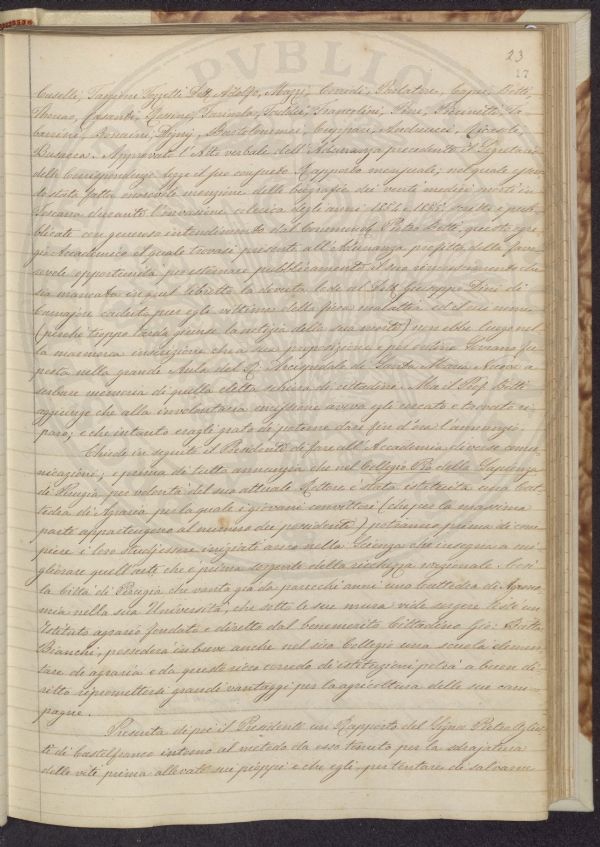 23
17
Caselli, Targioni Tozzetti Dott. Adolfo, Mazzi, Corridi, Salvatore, Capei, Betti,
Thouar, Casanti, Taddei,
Bonaini, Bartolommei, Cuppari, Andreucci,
Busacca. Approvato l'Atto verbale dell'Adunanza precedente il Segretario
delle Corrispondenze legge il suo consueto Rapporto mensuale; nel quale essen-
do stata fatta onorevole menzione delle biografie dei venti medici morti in
Toscana durante l'invasione colerica degli anni 1854 e 1855 scritte e pub-
blicate con generoso intendimento dal Commend. Pietro Betti, questo egre-
gio Accademico il quale trovasi presente all'Adunanza profitta della favo-
revole opportunità per esternare pubblicamente il suo rincrescimento che
sia mancata in quel libretto la dovuta lode al Dott. Giuseppe Pini di
Camajore caduto pur egli vittima della fiera malattia ed il cui nome
(perché troppo tarda giunse la notizia della sua morte) non ebbe luogo nel-
la marmorea inscrizione che a sua proposizione e per ordine Sovrano fu
posta nella grande Aula del R. Arcispedale di Santa Maria Nuova a
serbare memoria di quella eletta schiera di cittadini. Ma il Prof. Betti
aggiunge che alla involontaria omissione aveva egli cercato e trovato ri-
paro; e che intanto eragli grato di poterne dare fin d'ora l'annunzio.
Chiede in seguito il Presidente di fare all'Accademia diverse comu-
nicazioni; e prima di tutto annunzia che nel Collegio Pio della Sapienza
di Perugia per volontà del suo attuale Rettore è stata istituita una Cat-
tedra di Agraria per la quale i giovani convittori (che per la massima
parte appartengono al numero dei possidenti) potranno prima di com-
piere i loro studj essere iniziati anco nella Scienza che insegna a mi-
gliorare quell'arte che è prima sorgente della ricchezza nazionale. Così
la Città di Perugia che vanta già da parecchi anni una Cattedra di Agrono-
mia nella sua Università; che sotto le sue mura vide sorgere un
Istituto agrario fondato e diretto dal benemerito Cittadino Gio: Batta
Bianchi, possederà in breve anche nel suo Collegio una scuola elemen-
tare di agraria e da questo ricco corredo di istituzioni potrà a buon di-
ritto ripromettersi grandi vantaggi per la agricoltura delle sue cam-
pagne.
Presenta di poi il Presidente un Rapporto del Signor Pietro
di Castelfranco intorno al metodo da esso tenuto per la solforatura
delle viti prima allevate sui pioppi e che egli per tentare di salvarne